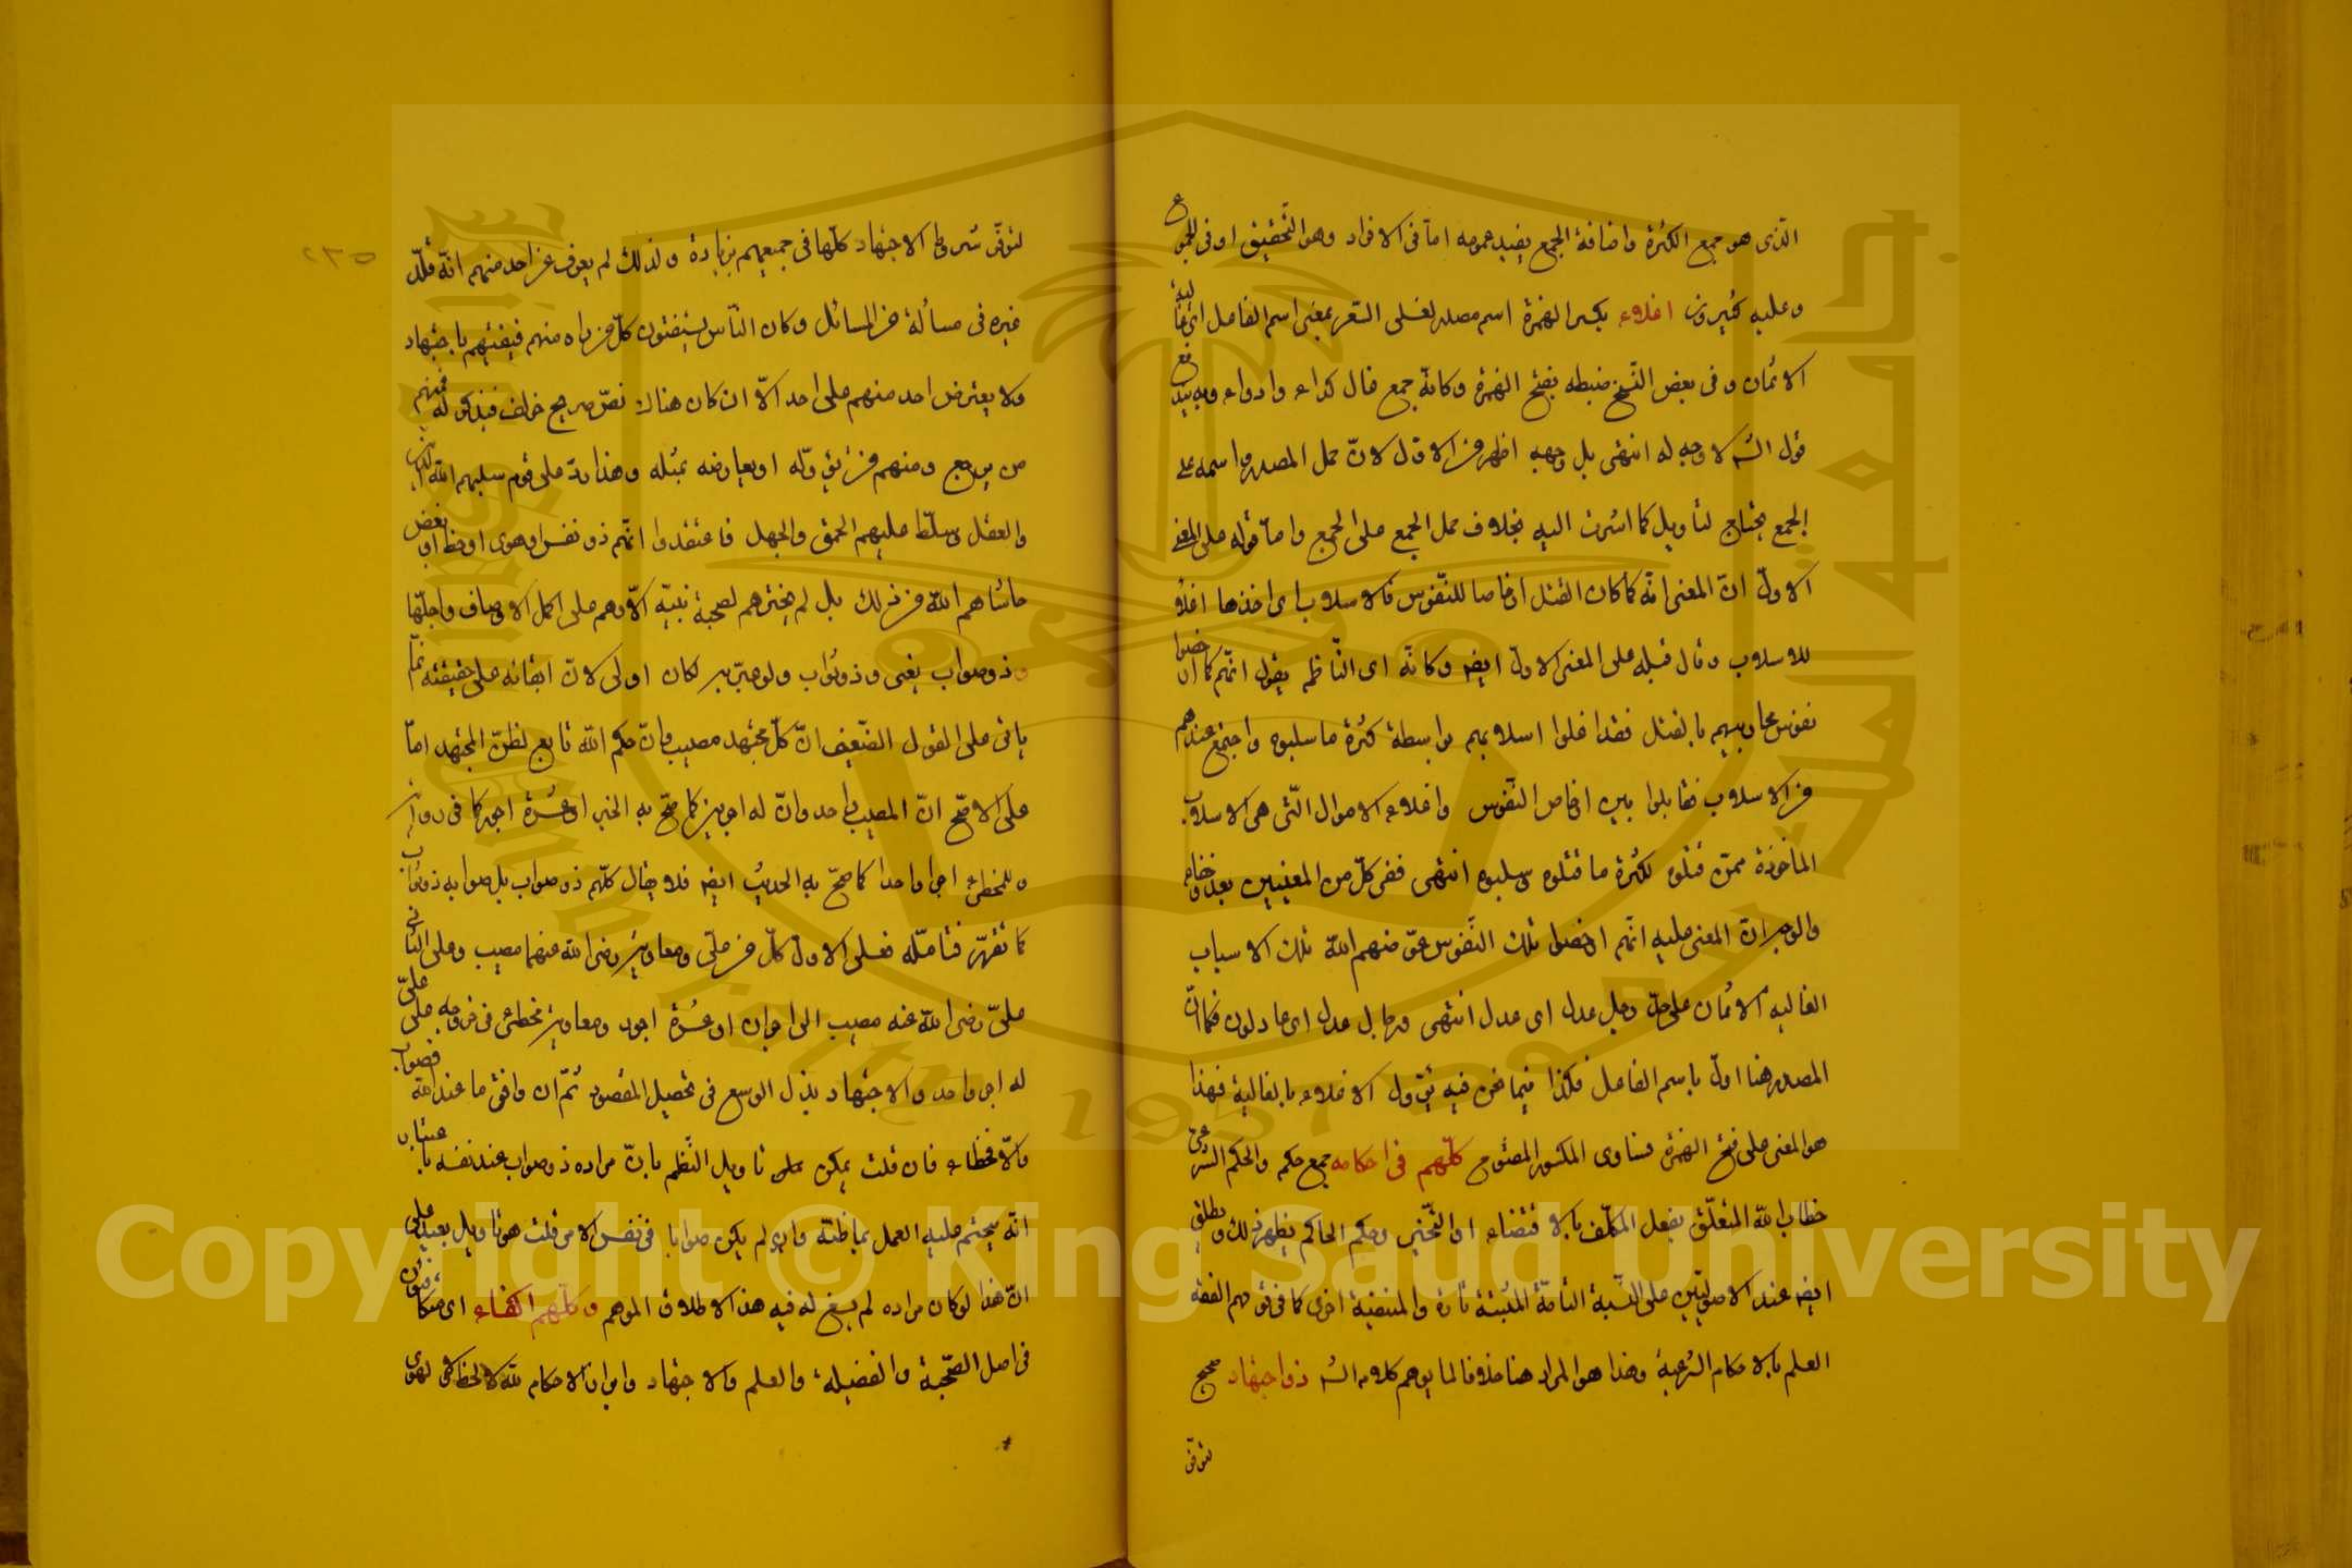 الذى هو جمع الكثرة واضافة الجمع يفيد عمومه اما فى الافراد وهو التحقيق او فى المجموع
وعليه كثيرون اغلاء بكسر الهمزة اسم مصدر لغلى السعر بمعنى اسم الفاعل اى غالية
الاثمان وفى بعض النسخ ضبطه بفتح الهمزة وكانه جمع غال كداء وادواء وبه يندفع
قول الش لا وجه له انتهى بل وجهه اظهر من الاول لان حمل المصدر واسمه على
الجمع يحتاج لتاويل كما اشرت اليه بخلاف حمل الجمع على الجمع واما قوله على المعنى
الاول ان المعنى انه كما كان القتل ارخاصا للنفوس فالاسلاب اى اخذها اغلاء
للاسلاب وقال قبله على المعنى الاول ايضا وكانه اى الناظم يقول انهم كما ارخصوا
نفوس محاربيهم بالقتل فقد اغلوا اسلابهم بواسطة كثرة ما سلبوه واجتمع عندهم
من الاسلاب فقابلوا بين ارخاص النفوس واغلاء الاموال التى هى الاسلاب
المأخوذة ممن قتلوه لكثرة ما قتلوه وسلبوه انتهى ففى كل من المعنيين بعد وخفاء
والوجه ان المعنى عليه انهم ارخصوا تلك النفوس عوضهم الله تلك الاسباب
الغالية الاثمان على حل رجل عدل اى عدل انتهى ورجال عدل اى عادلون فكما ان
المصدر هنا اول باسم الفاعل فكذا فيما نحن فيه يؤول الاغلاء بالغالية فهذا
هو المعنى على فتح الهمزة فساوى المكسور المفتوح كلهم فى احكامه جمع حكم والحكم الشرعى
خطاب الله المتعلق بفعل المكلف بالاقتضاء او التخيير وحكم الحاكم يظهر ذلك ويطلق
ايضا عند الاصوليين على النسبة التامة المثبتة تارة والمنفية اخرى كما فى قولهم الفقه
العلم بالاحكام الشرعية وهذا هو المراد هنا خلافا لما يوهم كلام الش ذو اجتهاد صحيح
لتوفر
٢٣٥
لتوفر شروط الاجتهاد كلها فى جميعهم بزيادة ولذلك لم يعرف عن احد منهم انه قلد
غيره فى مسألة من المسائل وكان الناس يستفتون كل من راه منهم فيفتيهم باجتهاده
ولا يعترض احد منهم على احد الا ان كان هناك نص صريح خالف فيذكر له فمنهم
من يرجع ومنهم من يؤوله او يعارضه بمثله وهذا رد على قوم سلبهم الله الدين
والعقل وسلط عليهم الحمق والجهل فاعتقدوا انهم ذو نفس او هوى او حظ او بغض
حاشاهم الله من ذلك بل لم يخترهم لصحبة نبيه الا وهم على اكمل الاوصاف واجلها
وذو صواب يعنى وذو ثواب ولو عبر به لكان اولى لان ابقائه على حقيقته انما
ياتى على القول الضعيف ان كل مجتهد مصيب وان حكم الله تابع لظن المجتهد اما
على الاصح ان المصيب واحد وان له اجرين كما صح به الخبر او عشرة اجور كما فى رواية
وللمخطئ اجرا واحدا كما صح به الحديث ايضا فلا يقال كلهم ذو صواب بل صوابه ذو ثواب
كما تقرر فتامله فعلى الاول كل من على ومعاوية رضى الله عنهما مصيب وعلى الثانى
على رضى الله عنه مصيب اجران او عشرة اجور ومعاوية مخطئ فى خروجه على على
له اجر واحد والاجتهاد بذل الوسع فى تحصيل المقصود ثم ان وافق ما عند الله فصواب
والا فخطاء فان قلت يمكن على تاويل النظم بان مراده ذو صواب عند نفسه باعتبار
انه يتحتم عليه العمل بما ظنه وان لم يكن صوابا فى نفس الامر قلت هو تاويل بعيد على
ان هذا لو كان مراده لم يسغ له فيه هذا الاطلاق الموهم وكلهم اكفاء اى متكافئون
فى اصل الصحبة والفضيلة والعلم والاجتهاد واجراء الاحكام لله لا لحظ ولا لهوى